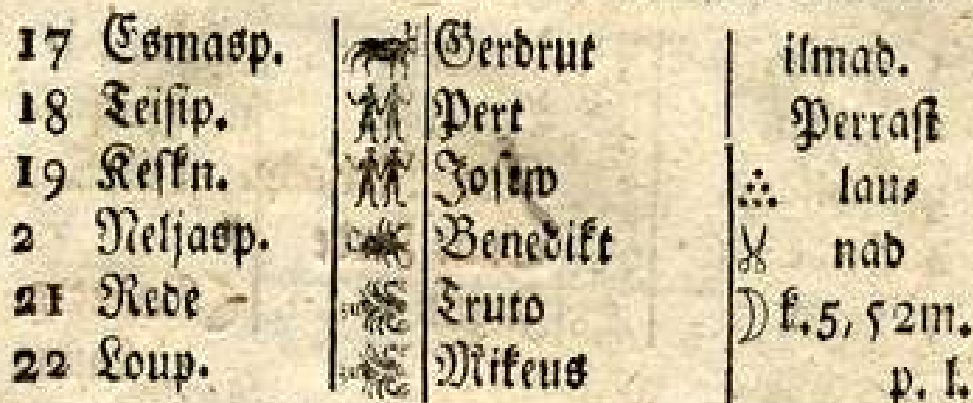 17 Esmasp. Gerdrut ilmad.
18 Teisip. Pert Perrast
19 Keskn. Josew ∴ lau⸗
2 Neljasp. Benedikt nad
21 Rede Truto ☽ k. 5, 52m.
22 Loup. Mikeus p. l.